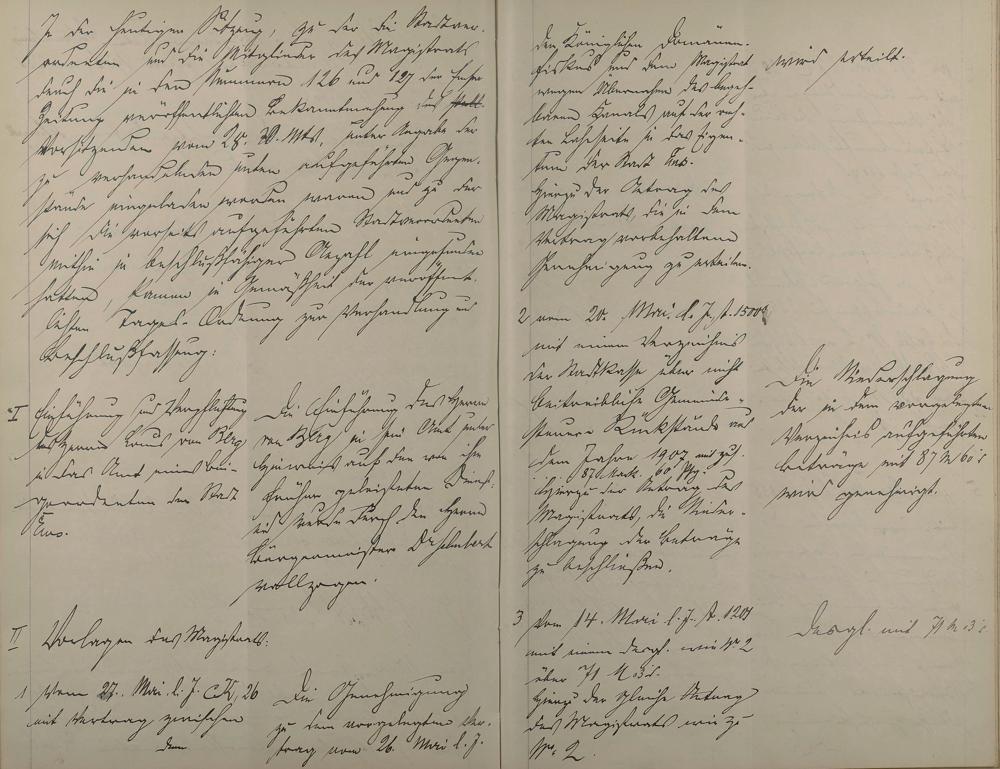 In der heutigen Sitzung, zu der die Stadtver-
ordneten und die Mitglieder des Magistrats
durch die in den Nummern 126 und 127 der Emser
Zeitung veröffentlichten Bekanntmachung des
Vorsitzenden vom 28. v. Mts, unter Angabe der
zu verhandelnden unten aufgeführten Gegen-
stände eingeladen worden waren und zu der
sich die vorseits aufgeführten Stadtverordneten
mithin in beschlußfähiger Anzahl eingefunden
hatten, kamen in Gemäßheit der veröffent-
lichten Tages-Ordnung zur Verhandlung und
Beschlußfassung:
I Einführung und Verpflichtung
des Herrn von Berg
in das Amt eines Bei-
geordneten der Stadt
Ems.
Die Einführung des Herrn
von Berg in sein Amt unter
Hinweis auf den von ihm
früher geleisteten Dienst-
eid wurde durch den Herrn
Bürgermeister
vollzogen.
II Vorlagen des Magistrats.
1 Vom 27. Mai l. J. 26
mit Vertrag zwischen
dem
Die Genehmigung
zu dem vorgelegten Ver-
trag vom 26. Mai l. J.
dem Königlichen Domänen-
fiskus und dem Magistrat
wegen Übernahme des
Kanals auf der rech-
ten Lahnseite in das Eigen-
tum der Stadt Ems.
Hierzu der Antrag des
Magistrats, die in dem
Vertrag vorbehaltene
Genehmigung zu erteilen.
wird erteilt.
2 vom 20. Mai l. J.
mit einem Verzeichnis
der Stadtkasse über nicht
beitreibliche Gemeinde-
steuer Rückstände aus
dem Jahre 1907 mit zus.
87 Mark 60 Pfg.
Hierzu der Antrag des
Magistrats, die Nieder-
schlagung der Beträge
zu beschließen.
Die Niederschlagung
der in dem vorgelegten
Verzeichnis aufgeführten
Beträge mit 87 M 60
wird genehmigt.
3 Vom 14. Mai l. J. A. 1201
mit einem desgl. wie Nr. 2
über 71 M
Hierzu der gleiche Antrag
des Magistrats wie zu
Nr. 2.
Desgl. mit 71 M